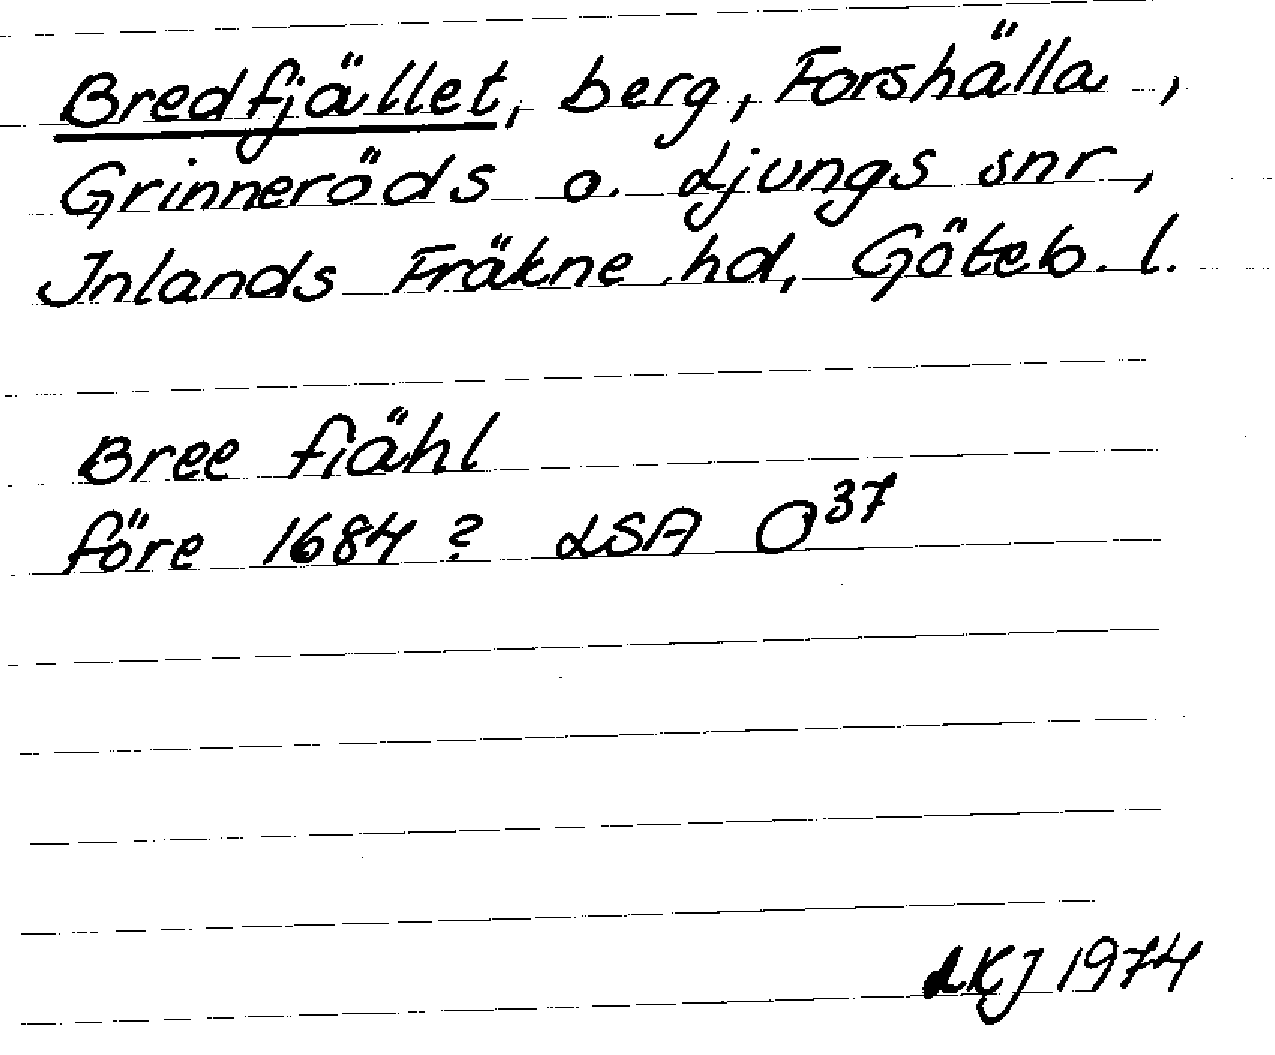 Bredfjället, berg, Forshälla,
Grinneröds o. Ljungs snr,
Inlands Fräkne hd, Göteb. l.
Bree fiähl
före 1684? LSA O37
LKJ 1974